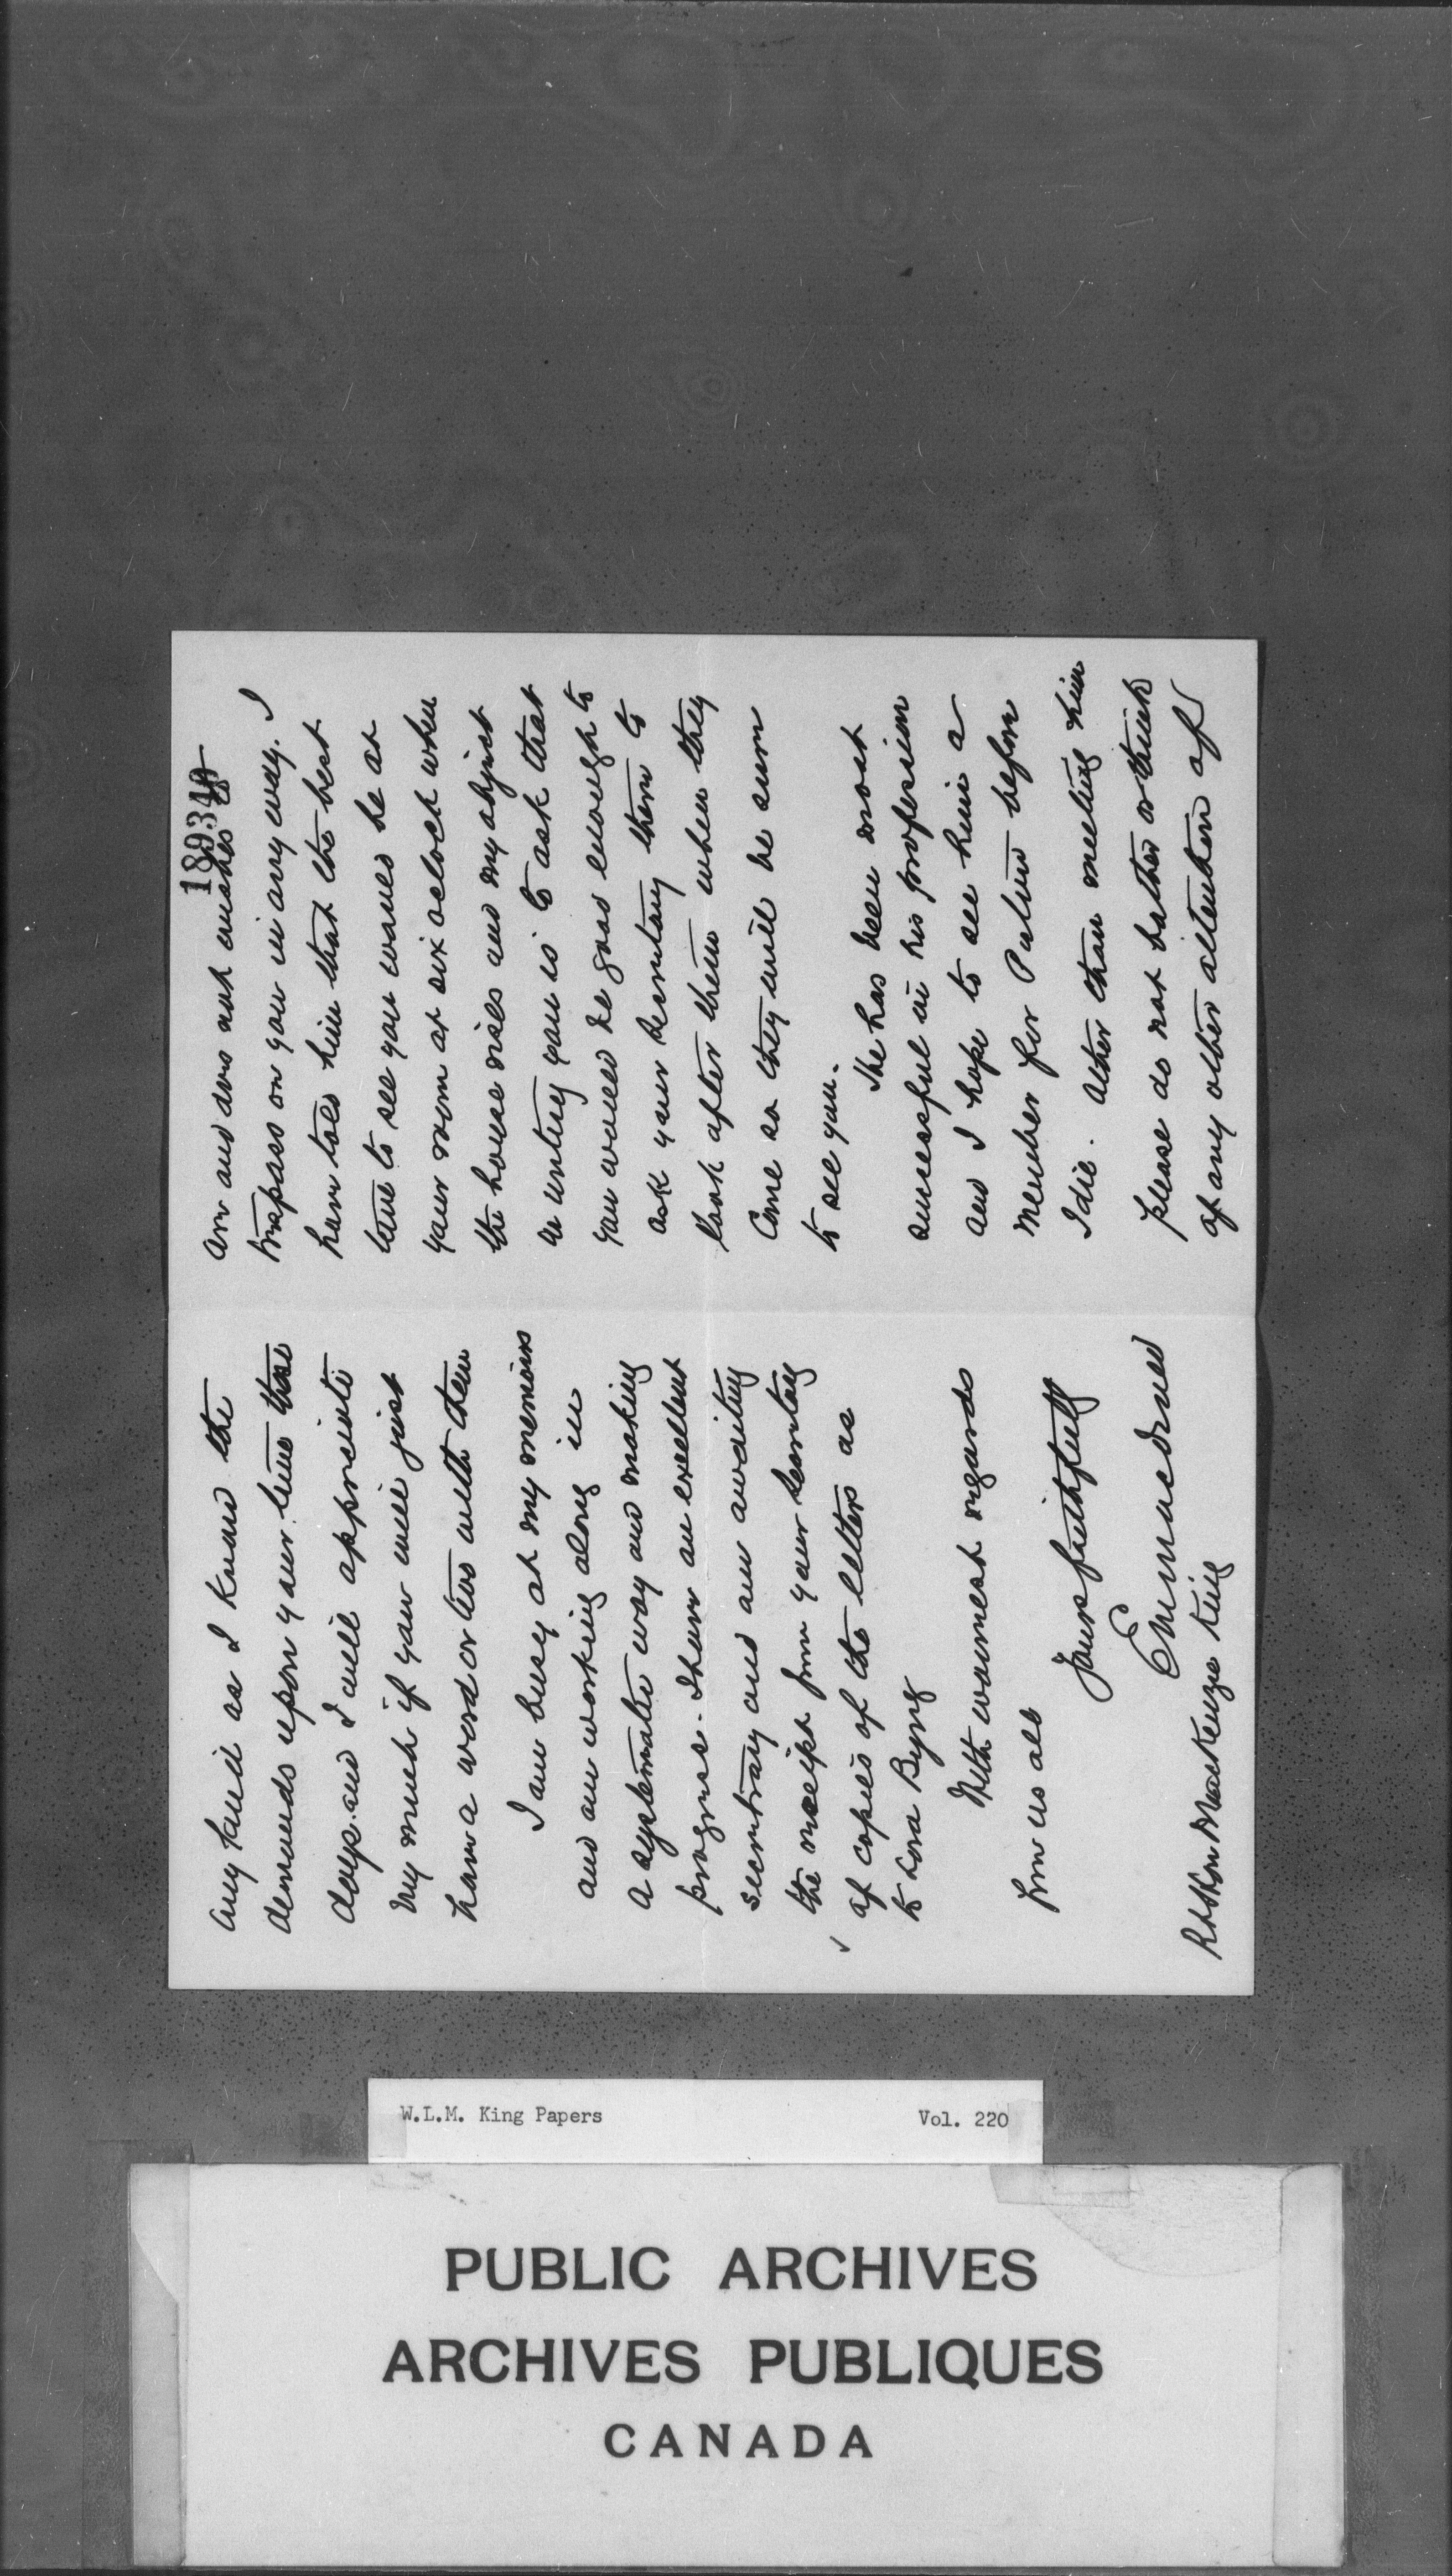 189349
are and does not wishes to
trespass on you in any way. I
have told him that the best
time to see you would be at
your room at six oclock when
the house rises and my object
in writing you is to ask that
you would be good enough to
ask your secretary there to
look after them when they
come so they will be sure
to see you.
He has been most
successful in his profession
and I hope to see him a
member for Pictou before
I die. Other than meeting him
please do not bother or think
of any other attention of
any kind as I know the
demands upon your time these
days. and I will appreciate
very much if you will just
have a word or two with them
I am busy at my memoirs
and am working along in
a systematic way and making
progress. I have an excellent
secretary and am awaiting
the receipt from your secretary
of copies of the letters as
to Lord Byng
With warmest regards
from us all
Yours faithfully
E M Macdonald
Rt Hon Mackenzie King
W.L.M. King Papers Vol. 220
PUBLIC ARCHIVES
ARCHIVES PUBLIQUES
CANADA